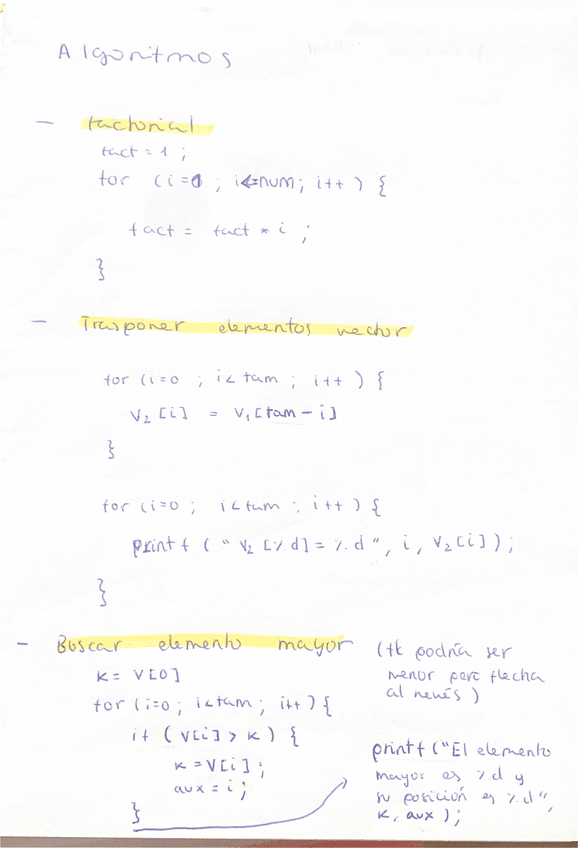 Algoritmos
- factorial
fact = 1 ;
for (i=0 ; i<=num; i++ ) {
fact = fact * i ;
}
- Trasponer elementos vector
for (i=0 ; i< tam ; i++ ) {
V2 [i] = V1[tam - i]
}
for (i=0 ; i<tam ; i++ ) {
printf ( " V2 [%d] = %d ", i, V2[i] ) ;
}
- Buscar elemento mayor
K = V[0]
for (i=0 ; i<tam ; i++ ) {
if ( V[i] > K ) {
K = V[i] ;
aux = i ;
}
(tk podría ser
menor pero flecha
al revés )
printf ("El elemento
mayor es %d y
su posición es %d",
K, aux ) ;